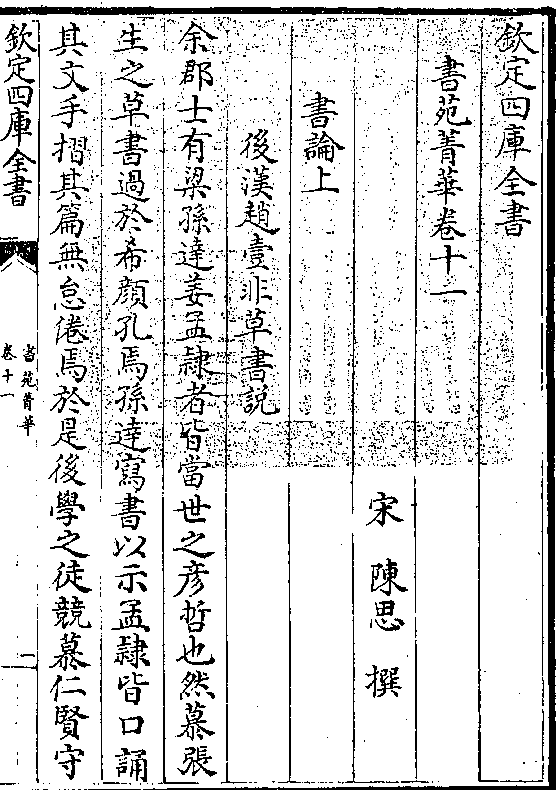 欽定四庫全書
書苑菁華卷十一
宋　陳思　撰
書論上
後漢趙壹非草書說
余郡士有梁孫達姜孟隷者皆當世之彥哲也然慕張
生之草書過於希顔孔焉孫達寫書以示孟隷皆口誦
其文手摺其篇無怠倦焉於是後學之徒競慕仁賢守
欽定四庫全書
書苑菁華
卷十一
一